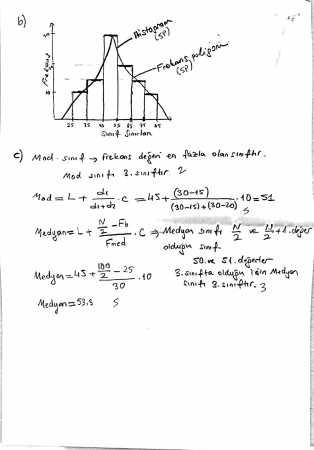 b)
Histogram
(5P)
Frekans poligonu
(5P)
Frekans
25 35 45 55 65 75 85
Sınıf Sınırları
c) Mod sınıfı → Frekans değeri en fazla olan sınıftır.
Mod sınıfı 3. sınıftır. 2
Mod = L + d1/(d1+d2) . C = 45 + (30-15)/((30-15)+(30-20)) . 10 = 51
5
Medyan = L + (N/2 - Fb)/Fmed . C ⇒ Medyan sınıfı N/2 ve N/2 + 1. değer
olduğu sınıf.
50. ve 51. değerler
Medyan = 45 + (100/2 - 25)/30 . 10
3. sınıfta olduğu için Medyan
sınıfı 3. sınıftır. 3
Medyan = 53,3 5